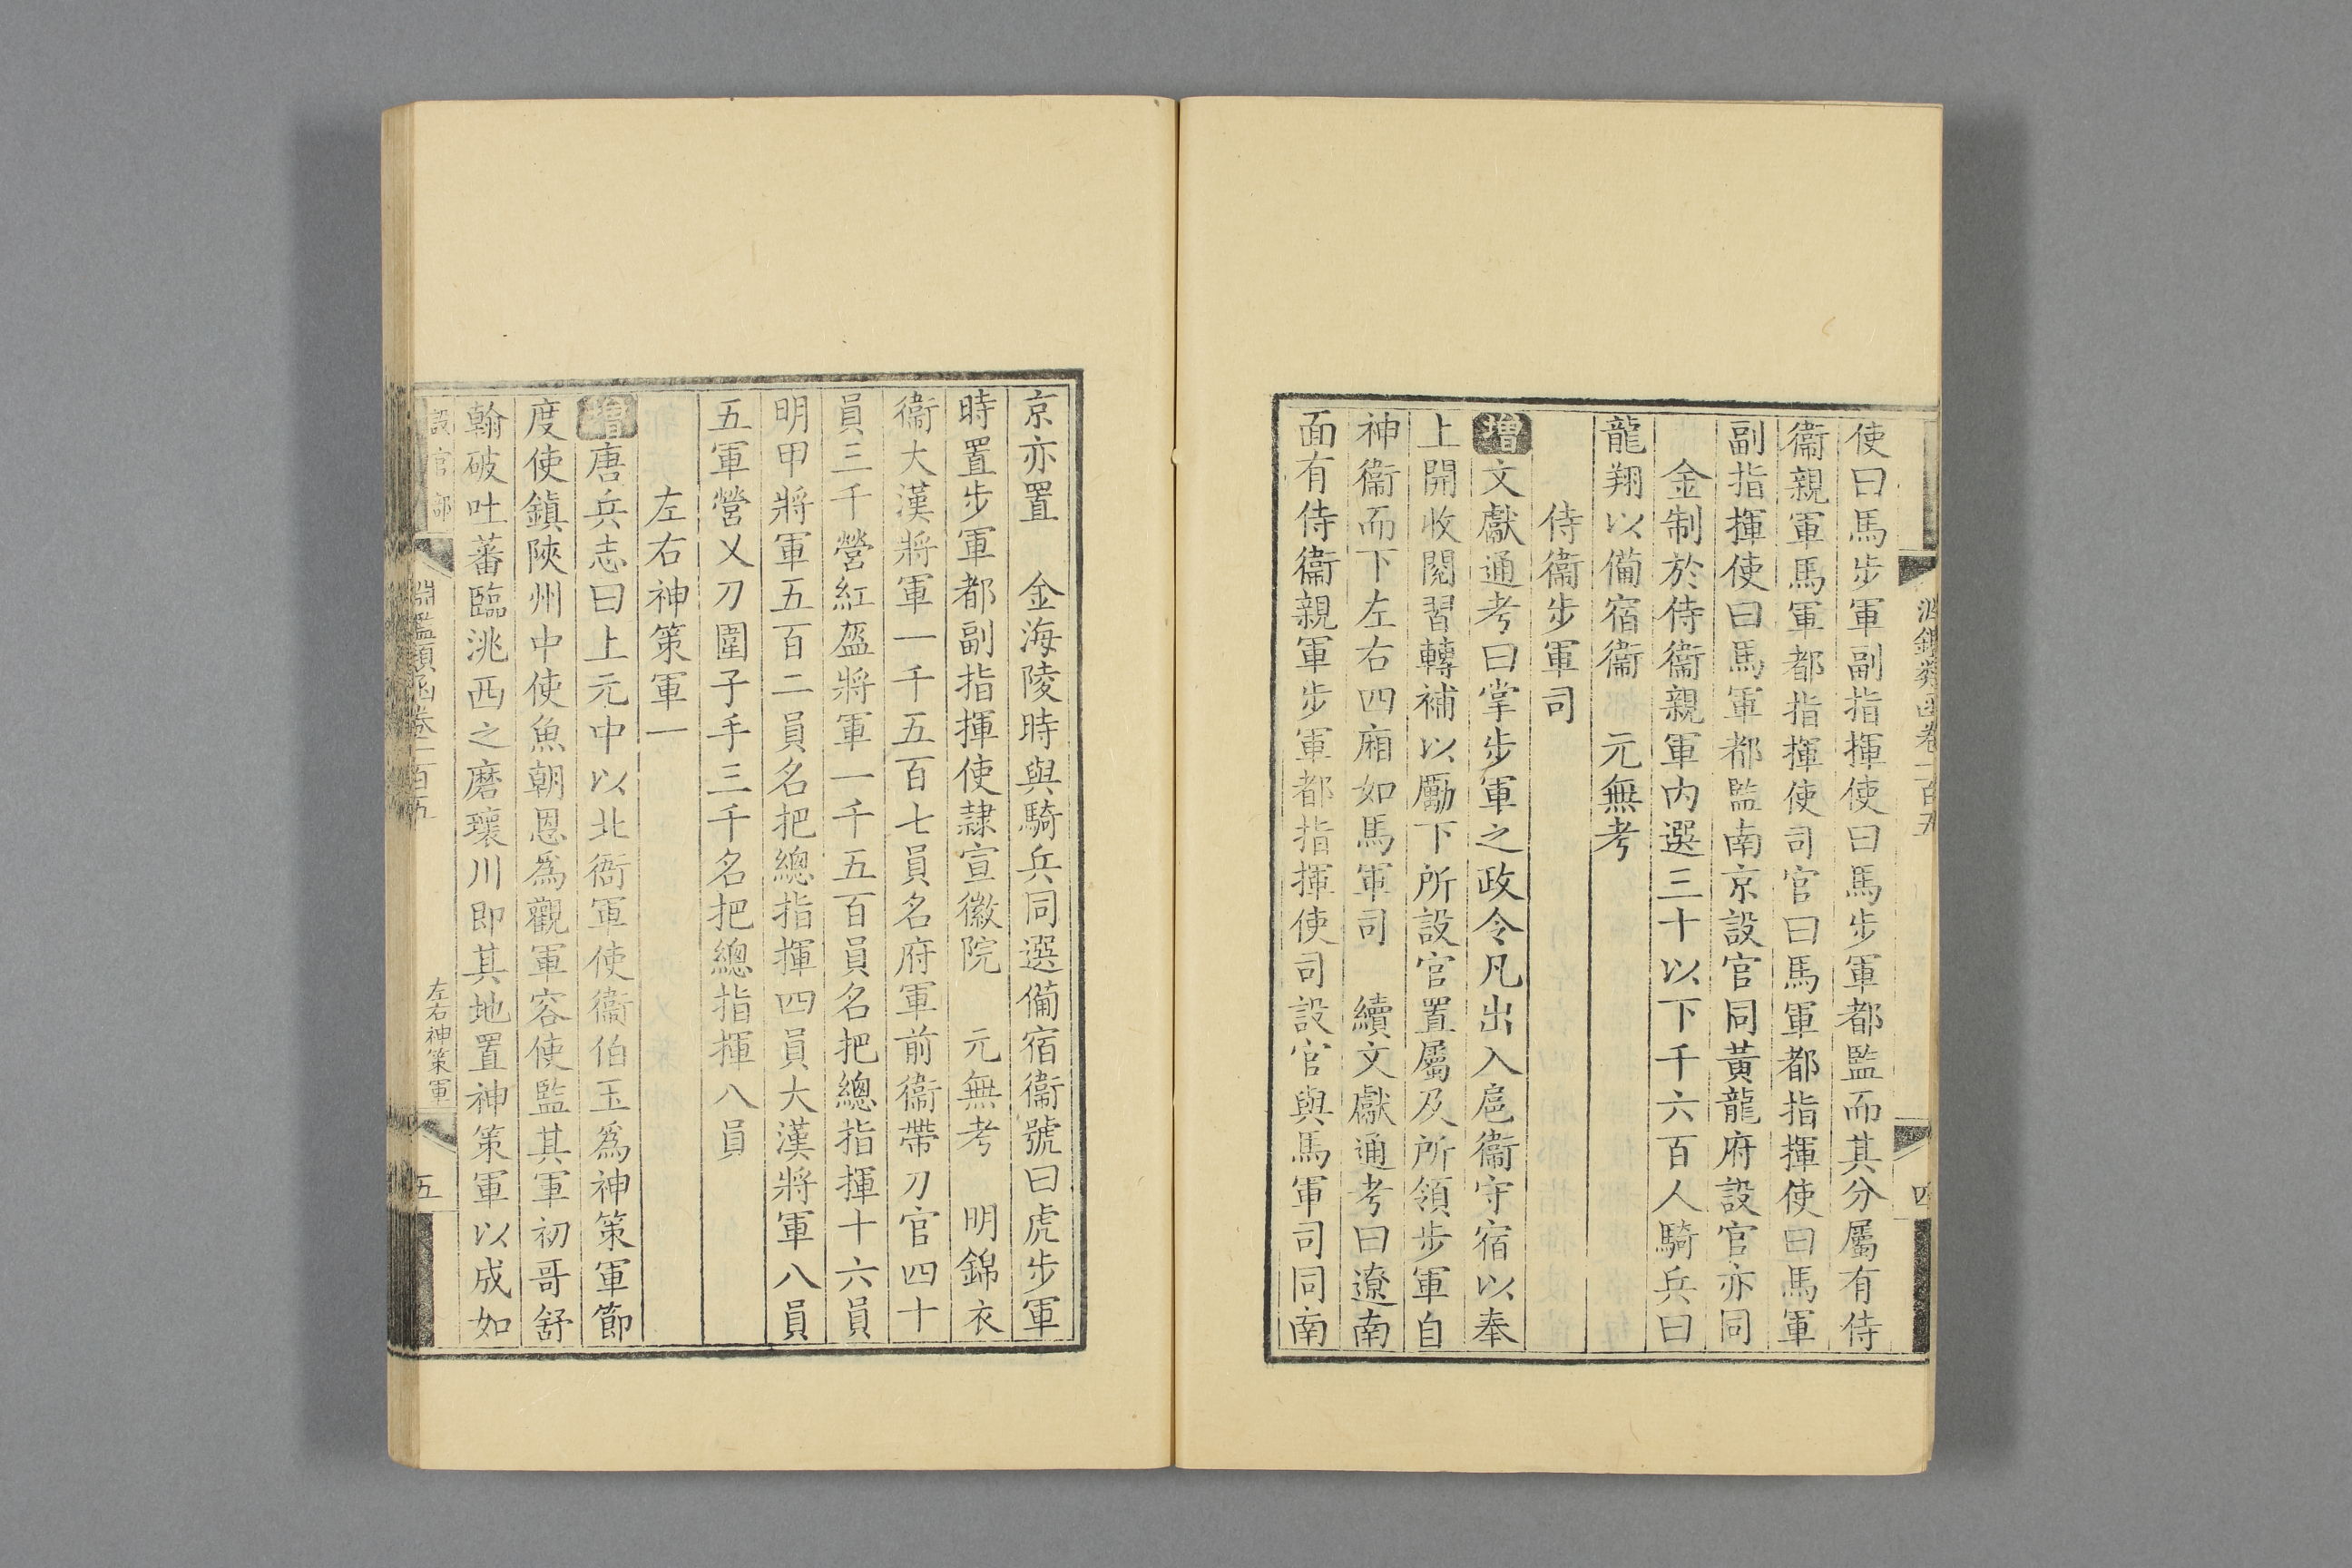 使曰馬步軍副指揮使曰馬步軍都監而其分屬有侍
衞親軍馬軍都指揮使司官曰馬軍都指揮使曰馬軍
副指揮使曰馬軍都監南京設官同黃龍府設官亦同
金制於侍衞親軍內選三十以下千六百人騎兵曰
龍翔以備宿衞 元無考
侍衞步軍司
增文獻通考曰掌步軍之政令凡出入扈衞守宿以奉
上開收閱習轉補以勵下所設官置屬及所領步軍自
神衞而下左右四廂如馬軍司 續文獻通考曰遼南
面有侍衞親軍步軍都指揮使司設官與馬軍司同南
京亦置 金海陵時與騎兵同選備宿衞號曰虎步軍
時置步軍都副指揮使隷宣徽院 元無考 明錦衣
衞大漢將軍一千五百七員名府軍前衞帶刀官四十
員三千營紅盔將軍一千五百員名把總指揮十六員
明甲將軍五百二員名把總指揮四員大漢將軍八員
五軍營乂刀圍子手三千名把總指揮八員
左右神策軍一
增唐兵志曰上元中以北衙軍使衞伯玉爲神策軍節
度使鎭陝州中使魚朝恩爲觀軍容使監其軍初哥舒
翰破吐蕃臨洮西之磨瓌川即其地置神策軍以成如
設官部
淵鑑類函卷一百五
左右神策軍
五